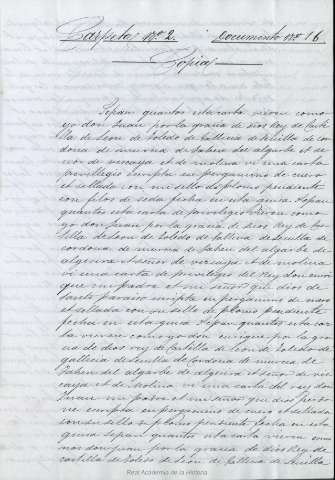 Carpeta nº 2. Documento nº 16
Copia
Sepan quantos esta carta vieren como
yo don Juan por la gracia de dios Rey de Casti
lla de Leon de Toledo de Gallizia de Sevilla de cor
dova de murcia de Jahen del algarbe et se
nor de vizcaya et de molina vi una carta
previllegio escripta en pergamino de cuero
et sellado con mi sello de plomo pendiente
con filos de seda fecha en esta guisa Sepan
quantos esta carta de previlegio vieren como
yo don Juan por la gracia de dios Rey de Cas
tilla de Leon de Toledo de Gallizia de Sevilla de
cordova de murcia de Jahen del algarbe de
algezira et señor de vizcaya et de molina
vi una carta de previlegio del Rey don enri
que mi padre et mi señor que dios de
santo paraiso escripta en pergamino de cuero
et sellada con su sello de plomo pendiente
fecha en esta guisa Sepan quantos esta car
ta vieren como yo don enrique por la gra
cia de dios rey de Castilla de Leon de Toledo de
gallizia de Sevilla de Cordova de murcia de
Jahen del algarbe de algezira et señor de viz
caya et de Molina vi una carta del rey don
Juan mi padre et mi señor que dios perdo
ne escripta en pergamino de cuero et sellada
con su sello de plomo pendiente fecha en esta
guisa sepan quantos esta carta vieren como
nos don Juan por la gracia de dios Rey de
castilla de Toledo de Leon de Gallizia de Sevilla
Real Academia de la Historia